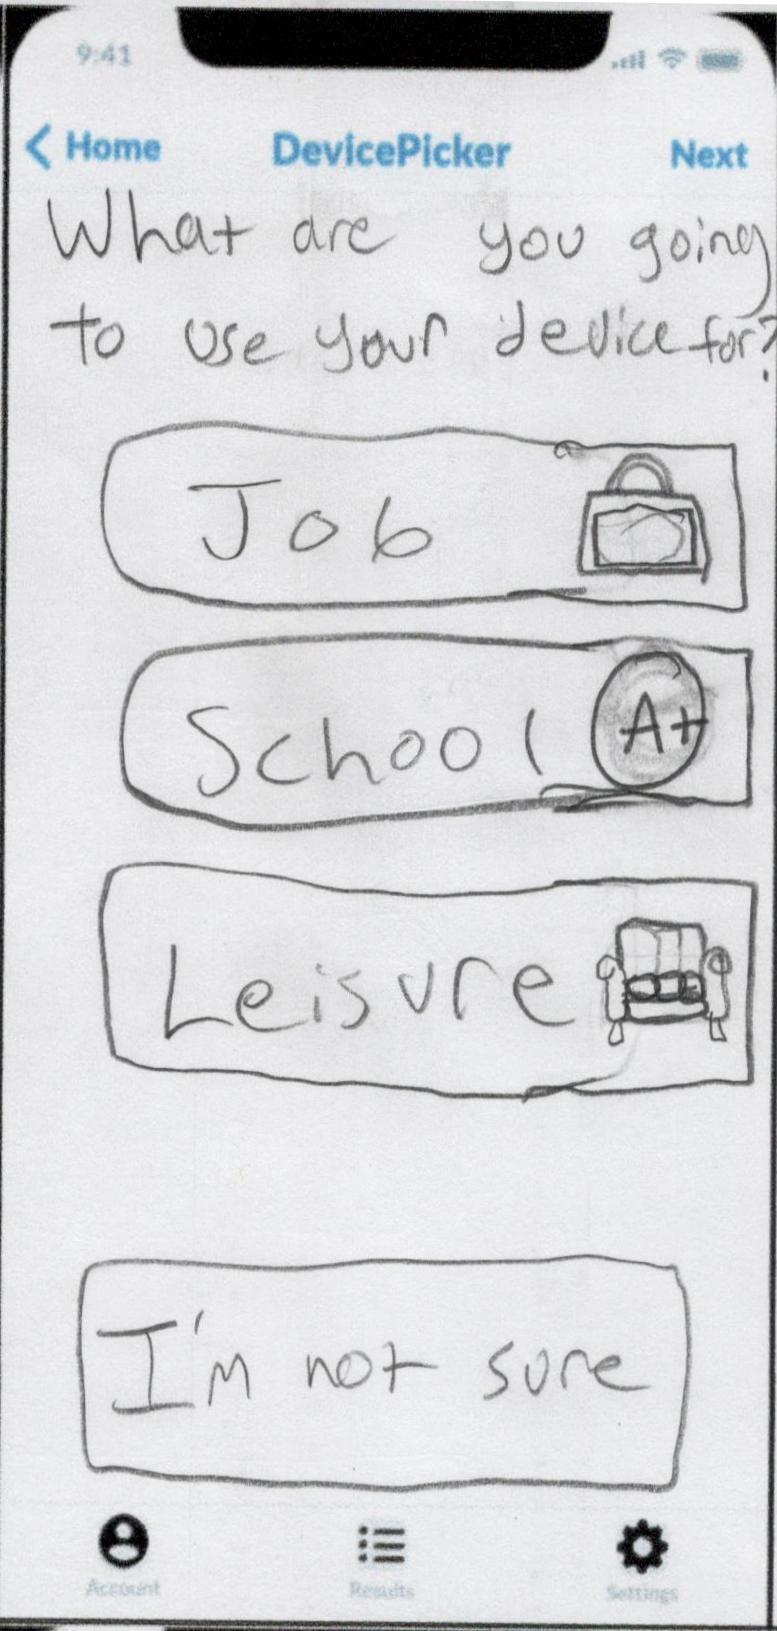 9:41
Home DevicePicker Next
What are you going
to use your device for?
Job
School A+
Leisure
I'm not sure
Account Results Settings